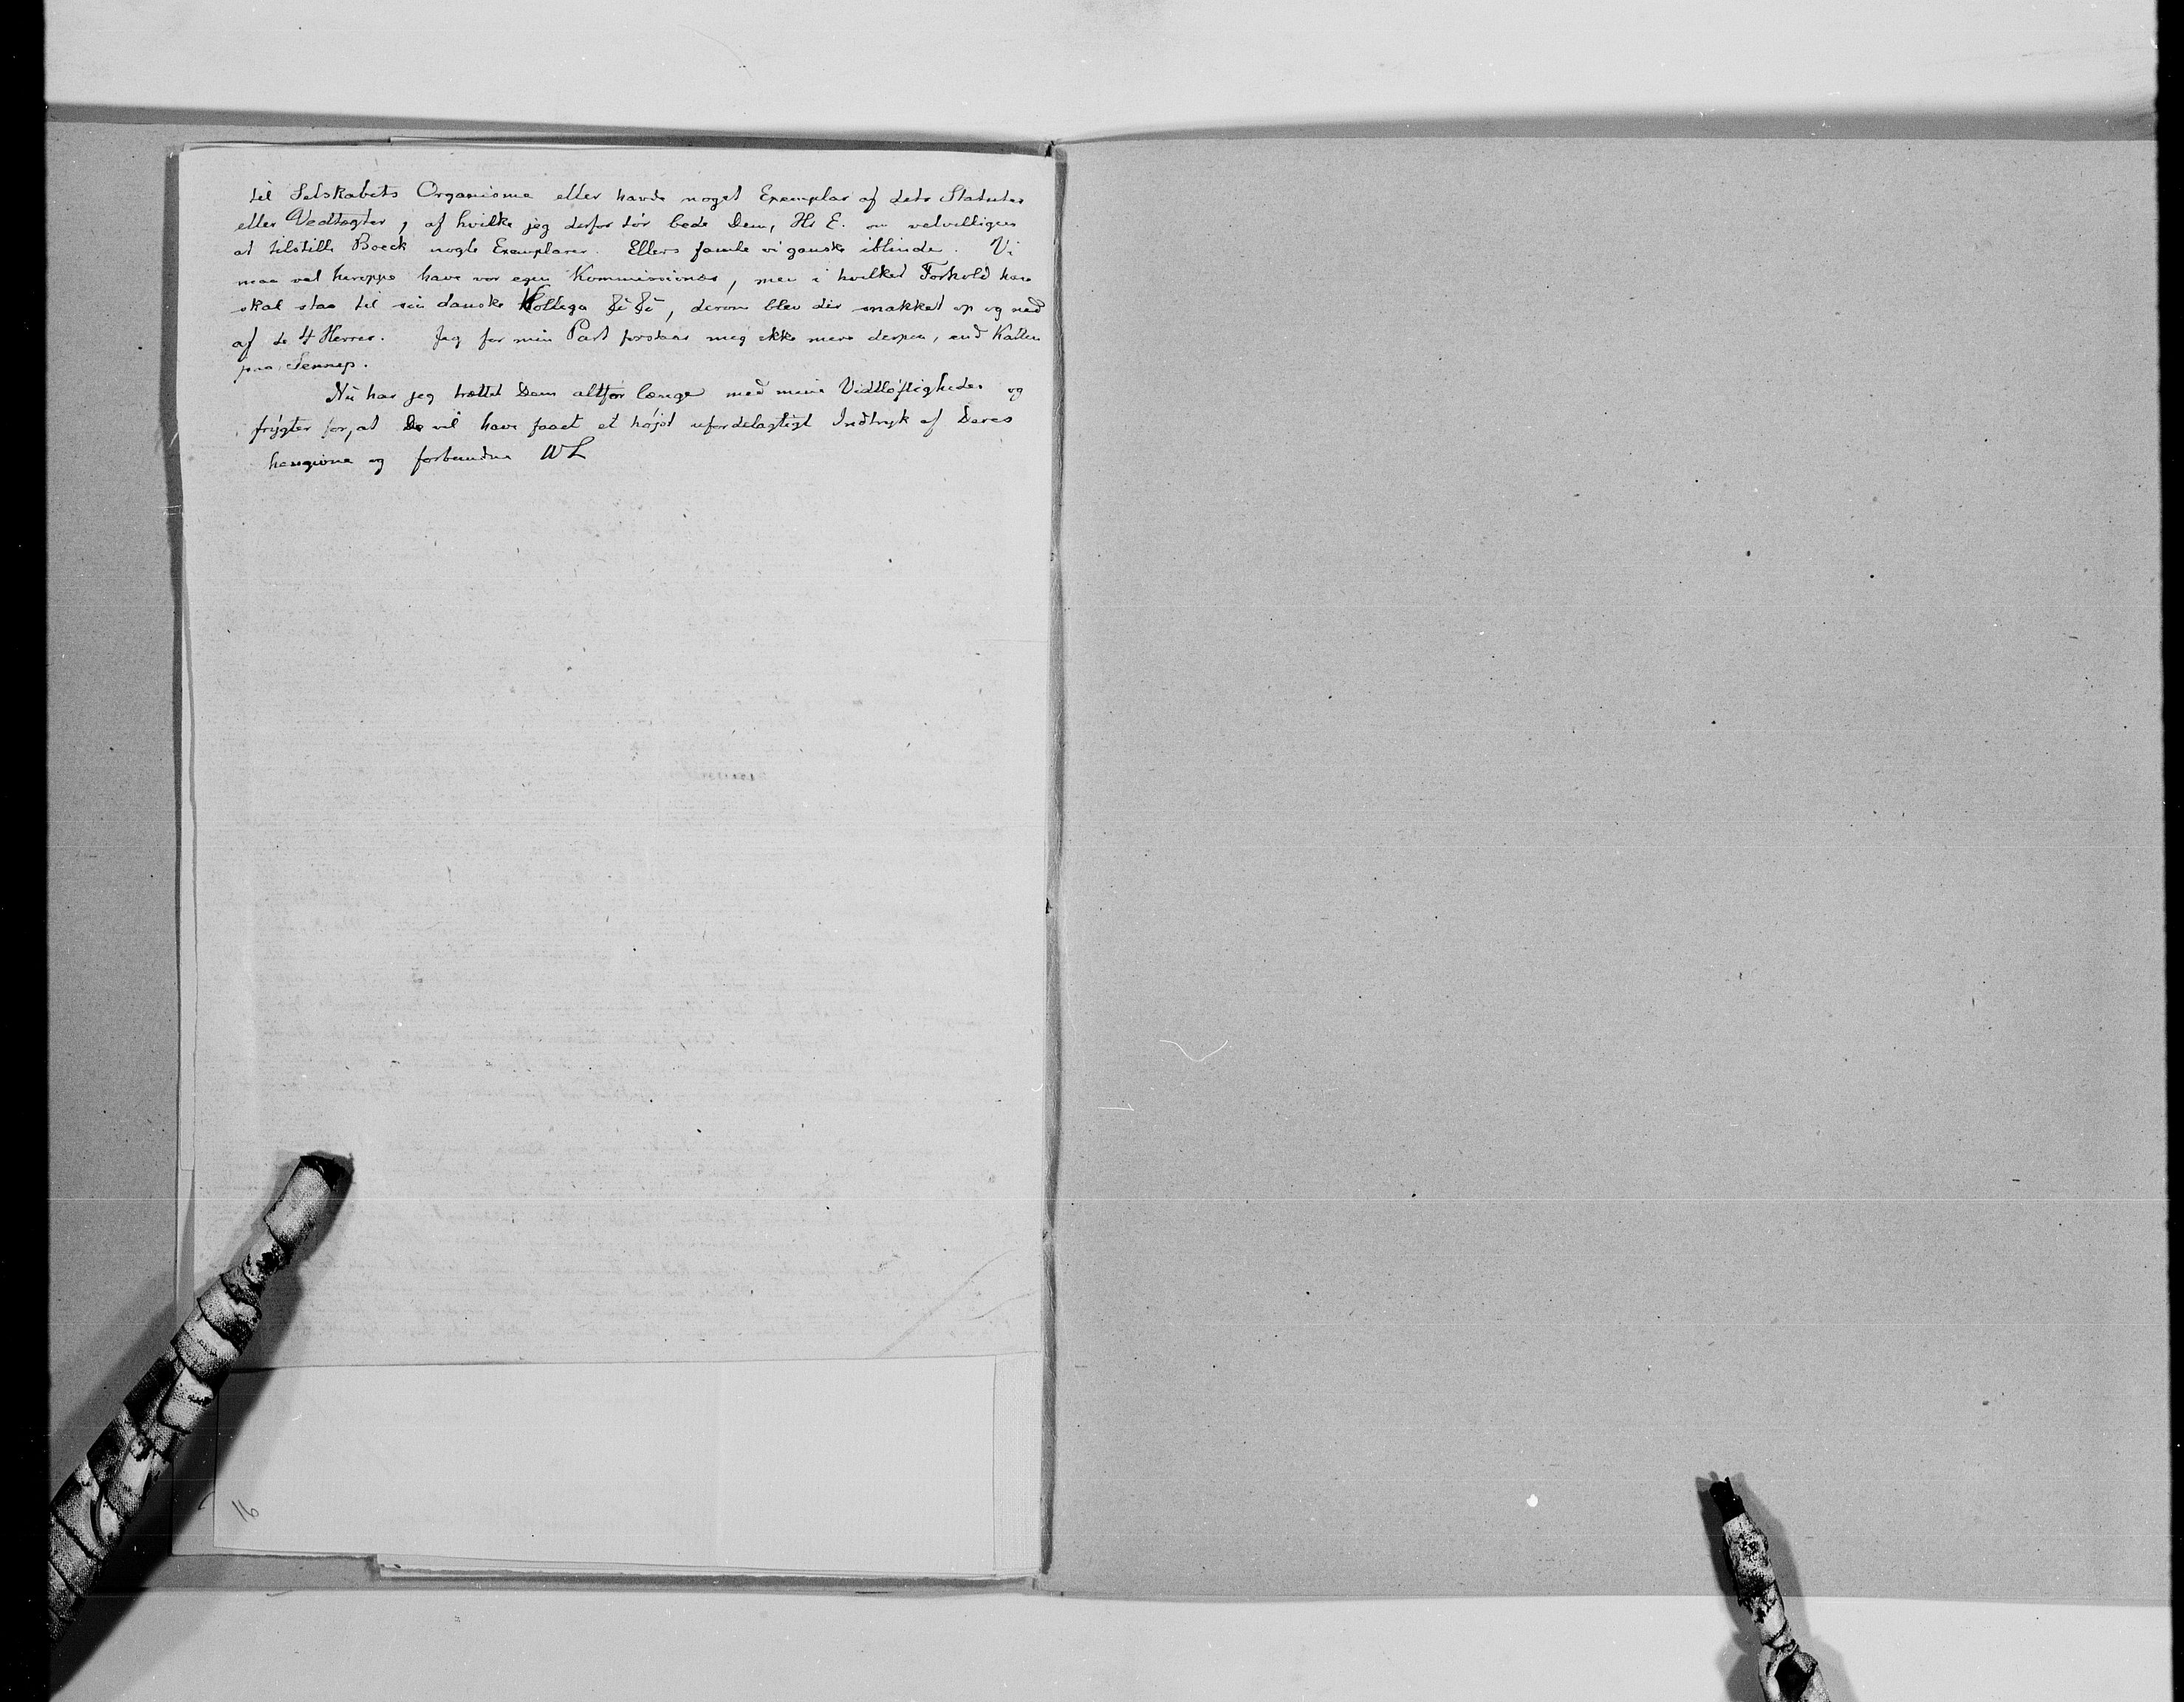 til Selskabets Organisme eller havde noget Exemplar af dets Statuter
eller Vedtægter, af hvilke jeg derfor tör bede Dem, Hr E. om velvilligen
at tilstille Boeck nogle Exemplarer. Ellers famle vi ganske iblinde. Vi
maa vel heroppe have vor egen Kommissionær, men i hvilket Forhold han
skal staa til sin danske Kollega, derom blev der snakket op og ned
af de 4 Herrer. Jeg for min Part forstaar mig ikke mere derpaa, end Katten
paa Sennep.
Nu har jeg trættet Dem altfor længe med mine Vidtlöftigheder og
frygter for, at De vil have faaet et höjst ufordelagtigt Indtryk af Deres
hengivne og forbundne WL
16